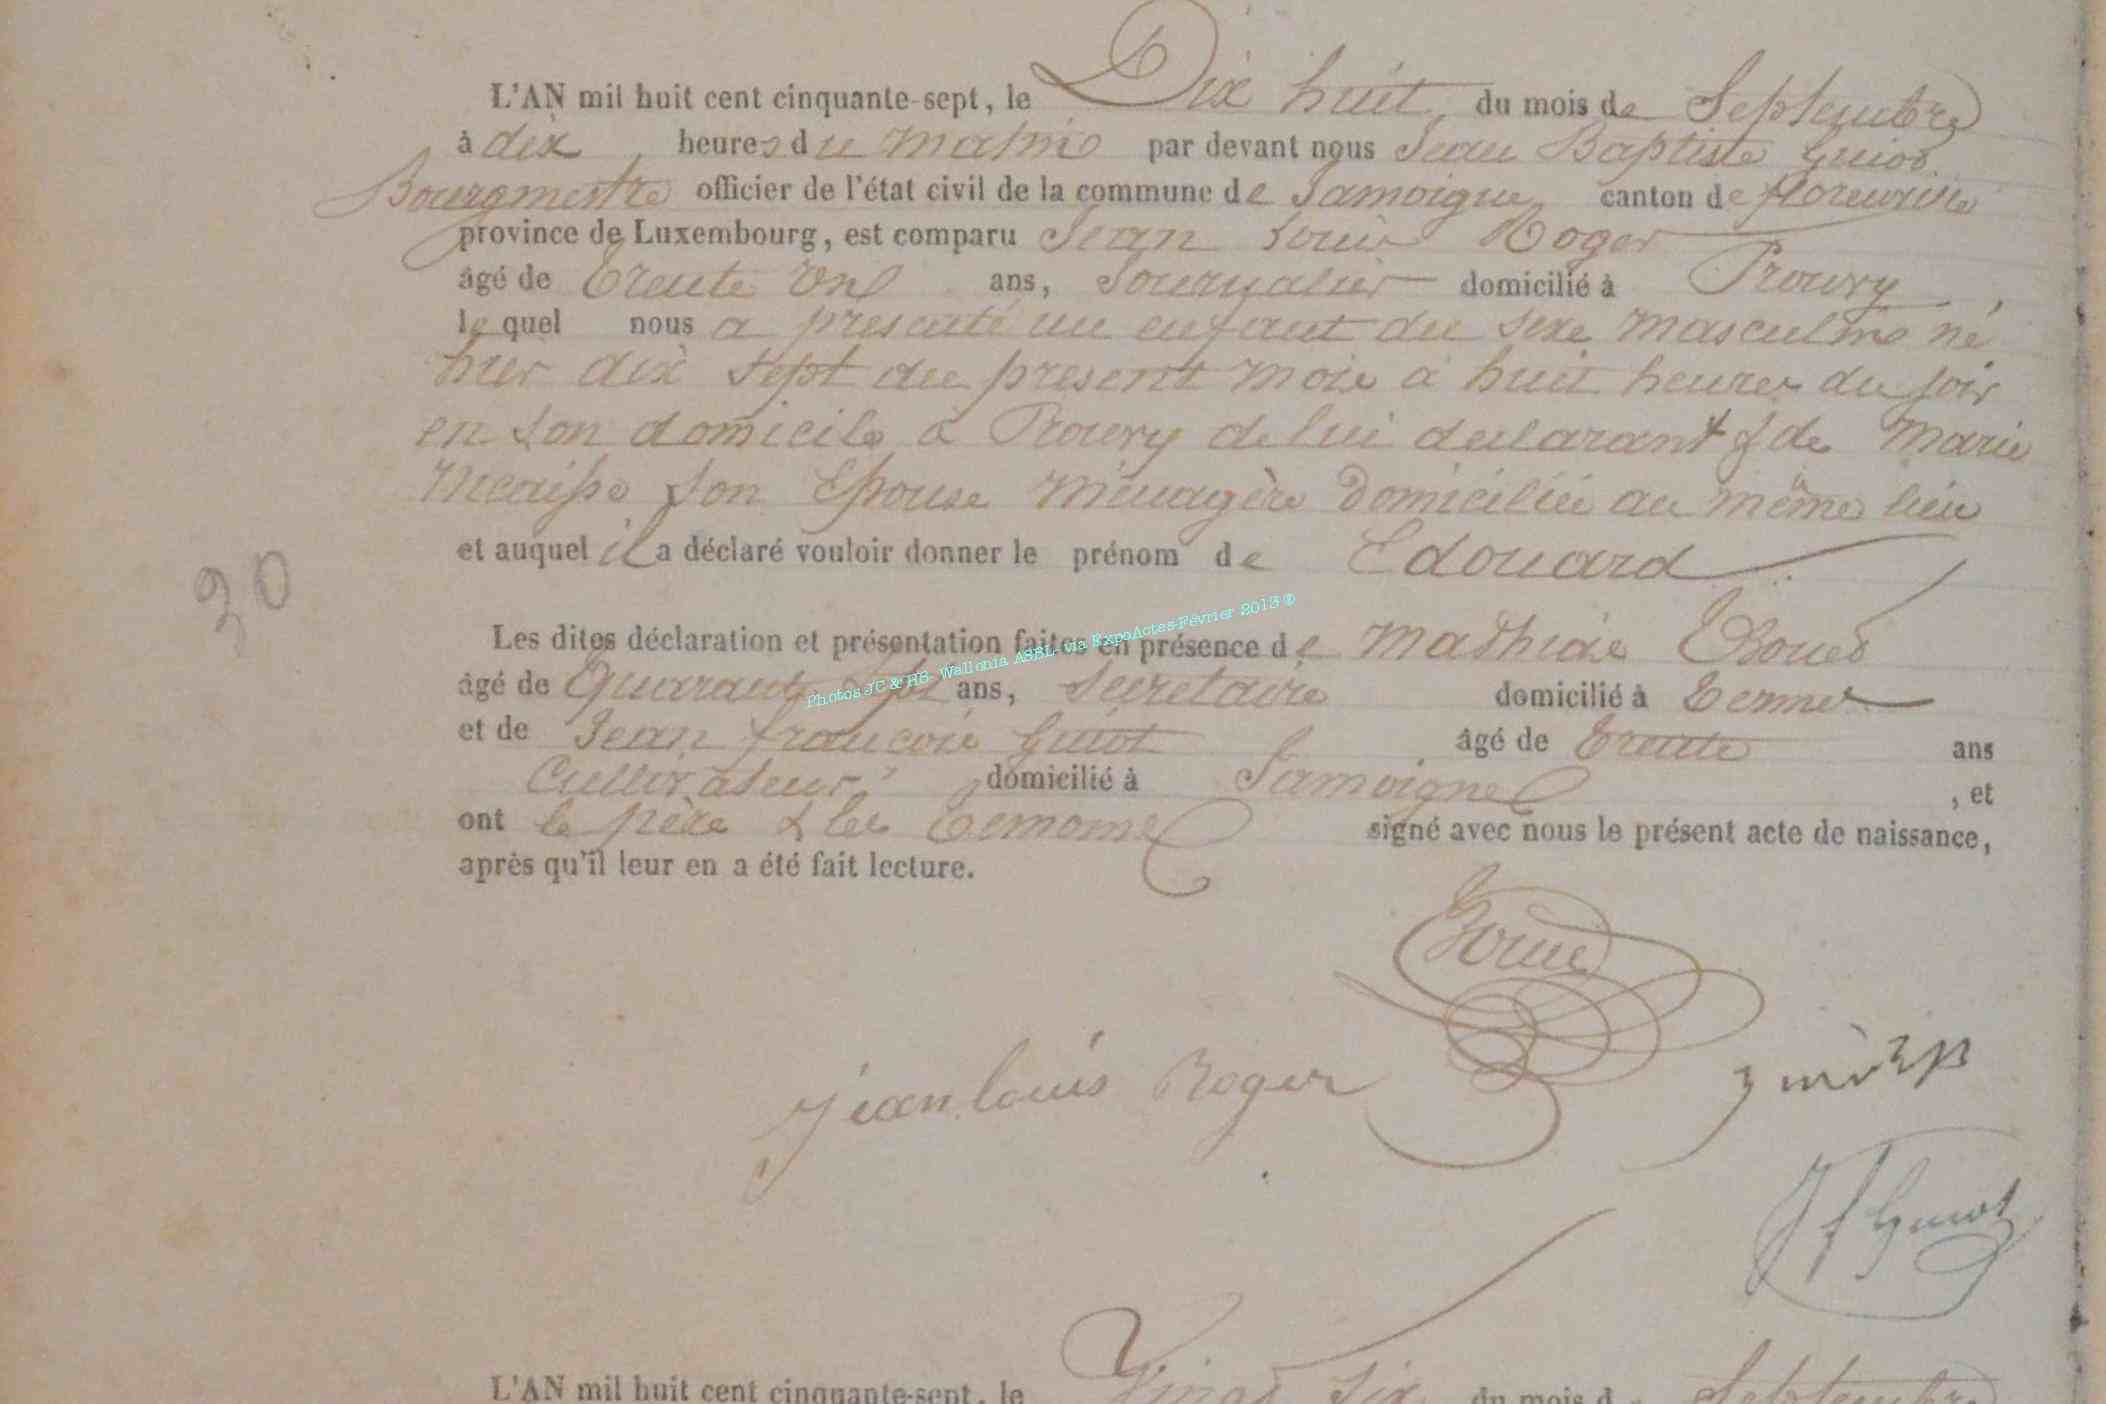 L'AN mil huit cent cinquante-sept, le Dix huit du mois de Septembre
à dix heures du matin par devant nous Jean Baptiste Guiot
Bourgmestre officier de l'état civil de la commune de Jamoigne canton de florenville
province de Luxembourg, est comparu Jean Louis Roger
âgé de trente un ans, Journalier domicilié à Prouvy
le quel nous a presenté un enfant du sexe masculin né
hier dix sept du present mois à huit heures du soir
en son domicile a Prouvy de lui declarant & de Marie
son Epouse Ménagère domiciliée au même lieu
et auquel il a déclaré vouloir donner le prénom de Edouard
30
Les dites déclaration et présentation faites en présence de Mathias
âgé de Quarante sept ans, Secretaire domicilié à Termes
et de Jean françois Guiot âgé de trente ans
Cultivateur domicilié à Jamoigne, et
ont le père & les temoins signé avec nous le présent acte de naissance,
après qu'il leur en a été fait lecture.
Photos JC & HS- Wallonia ASBL- via ExpoActes-Février 2013 ®
jean louis Roger
J f Guiot
L'AN mil huit cent cinquante-sept, le Vingt six du mois de Septembre